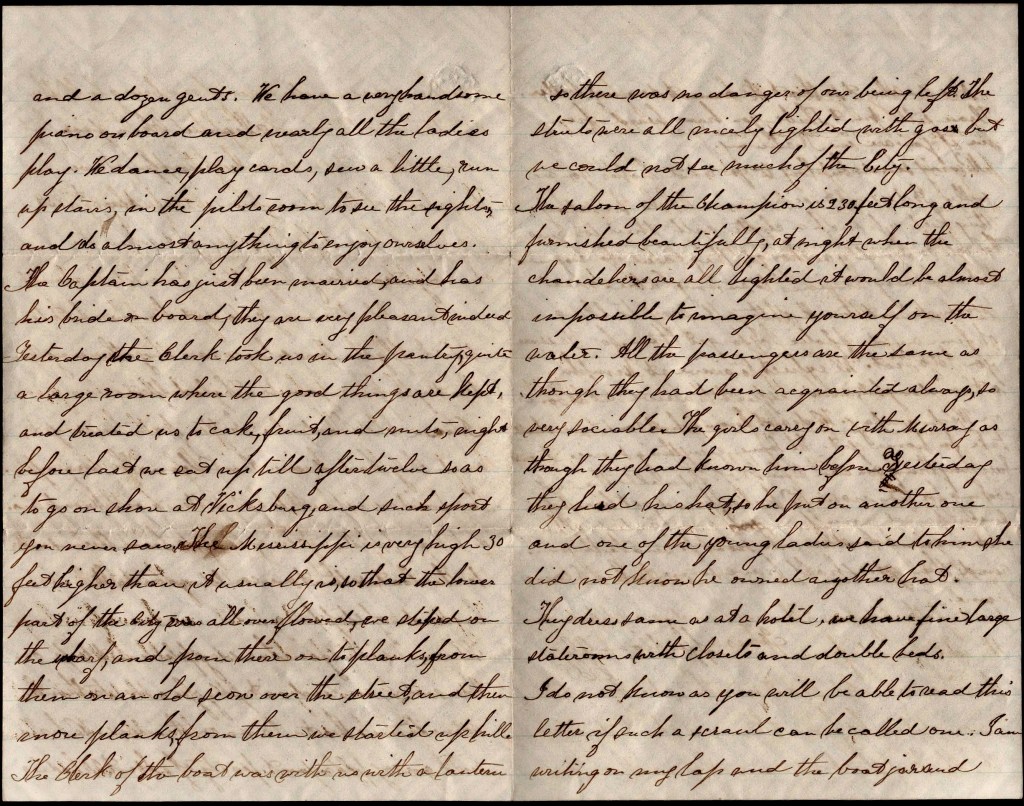 and a dozen gents. We have a very handsome
piano on board and nearly all the ladies
play. We dance, play cards, sew a little, run
up stairs, in the pilots room to see the sights,
and do almost anything to enjoy ourselves.
The Captain has just been married, and has
his bride on board, they are very pleasant indeed
Yesterday the Clerk took us in the pantry, quite
a large room where the good things are kept,
and treated us to cake, fruit, and nuts, night
before last we sat up till after twelve so as
to go on shore at Vicksburg, and such sport
you never saw. The Mississippi is very high 30
feet higher than it usually is, so that the lower
part of the City was all overflowed, we steped on
the wharf, and from there on to planks, from
them on an old scow over the street, and then
more planks, from them we started up hill.
The Clerk of the boat was with us with a lantern
so there was no danger of our being left. The
streets were all nicely lighted with gas but
we could not see much of the City.
The saloon of the Champion is 230 feet long and
furnished beautifully, at night when the
chandeliers are all lighted it would be almost
impossible to imagine yourself on the
water. All the passengers are the same as
though they had been acquainted always, so
very sociable. The girls carry on with Murray as
though they had known him before yesterday
they hid his hat, so he put on another one
and one of the young ladies said to him she
did not know he owned another hat.
They dress same as at a hotel, we have fine large
staterooms with closets and double beds.
I do not know as you will be able to read this
letter if such a scrawl can be called one. I am
writing on my lap and the boat jar and